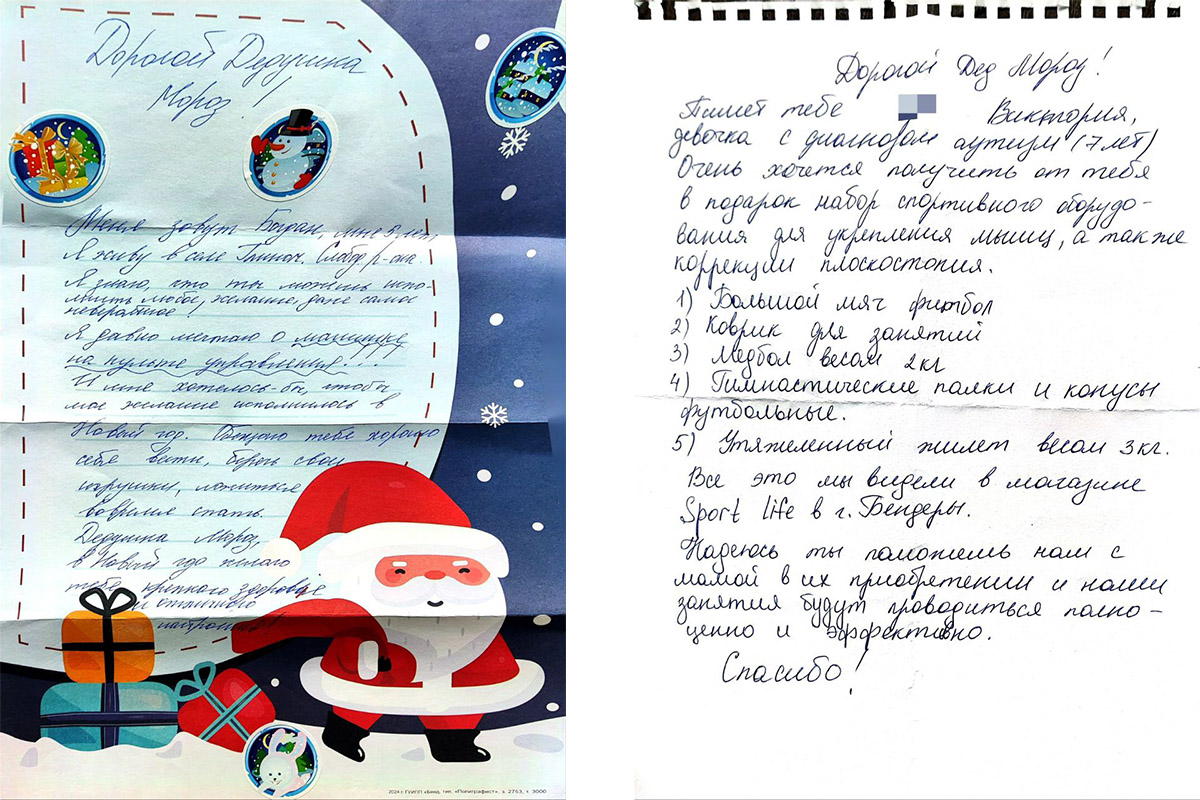 Дорогой Дедушка
Мороз!
Меня зовут Богдан, мне 5 лет,
Я живу в селе Глиное. Слобод. р-она.
Я знаю, что ты можешь испо-
лнить любое, желание, даже самое
невероятное!
Я давно мечтаю о машинке
на пульте управления...
И мне хотелось-бы, чтобы
мое желание исполнилось в
Новый год. Обещаю тебе хорошо
себя вести, беречь свои
игрушки, ложиться
вовремя спать.
Дедушка Мороз,
в Новый год желаю
тебе крепкого здоровье
и отличного
настроения!
2024 г. ГУИПП «Бенд. тип. «Полиграфист», з. 2763, т. 3000
Дорогой Дед Мороз!
Пишет тебе Виктория,
девочка с диагнозом аутизм (7 лет)
Очень хочется получить от тебя
в подарок набор спортивного оборудо-
вания для укрепления мышц, а также
коррекции плоскостопия.
1) Большой мяч фитбол
2) Коврик для занятий
3) Медбол весом 2кг
4) Гимнастические палки и конусы
футбольные.
5) Утяжеленный жилет весом 3кг.
Все это мы видели в магазине
Sport life в г. Бендеры.
Надеюсь ты поможешь нам с
мамой в их приобретении и наши
занятия будут проводиться полно-
ценно и эффективно.
Спасибо!